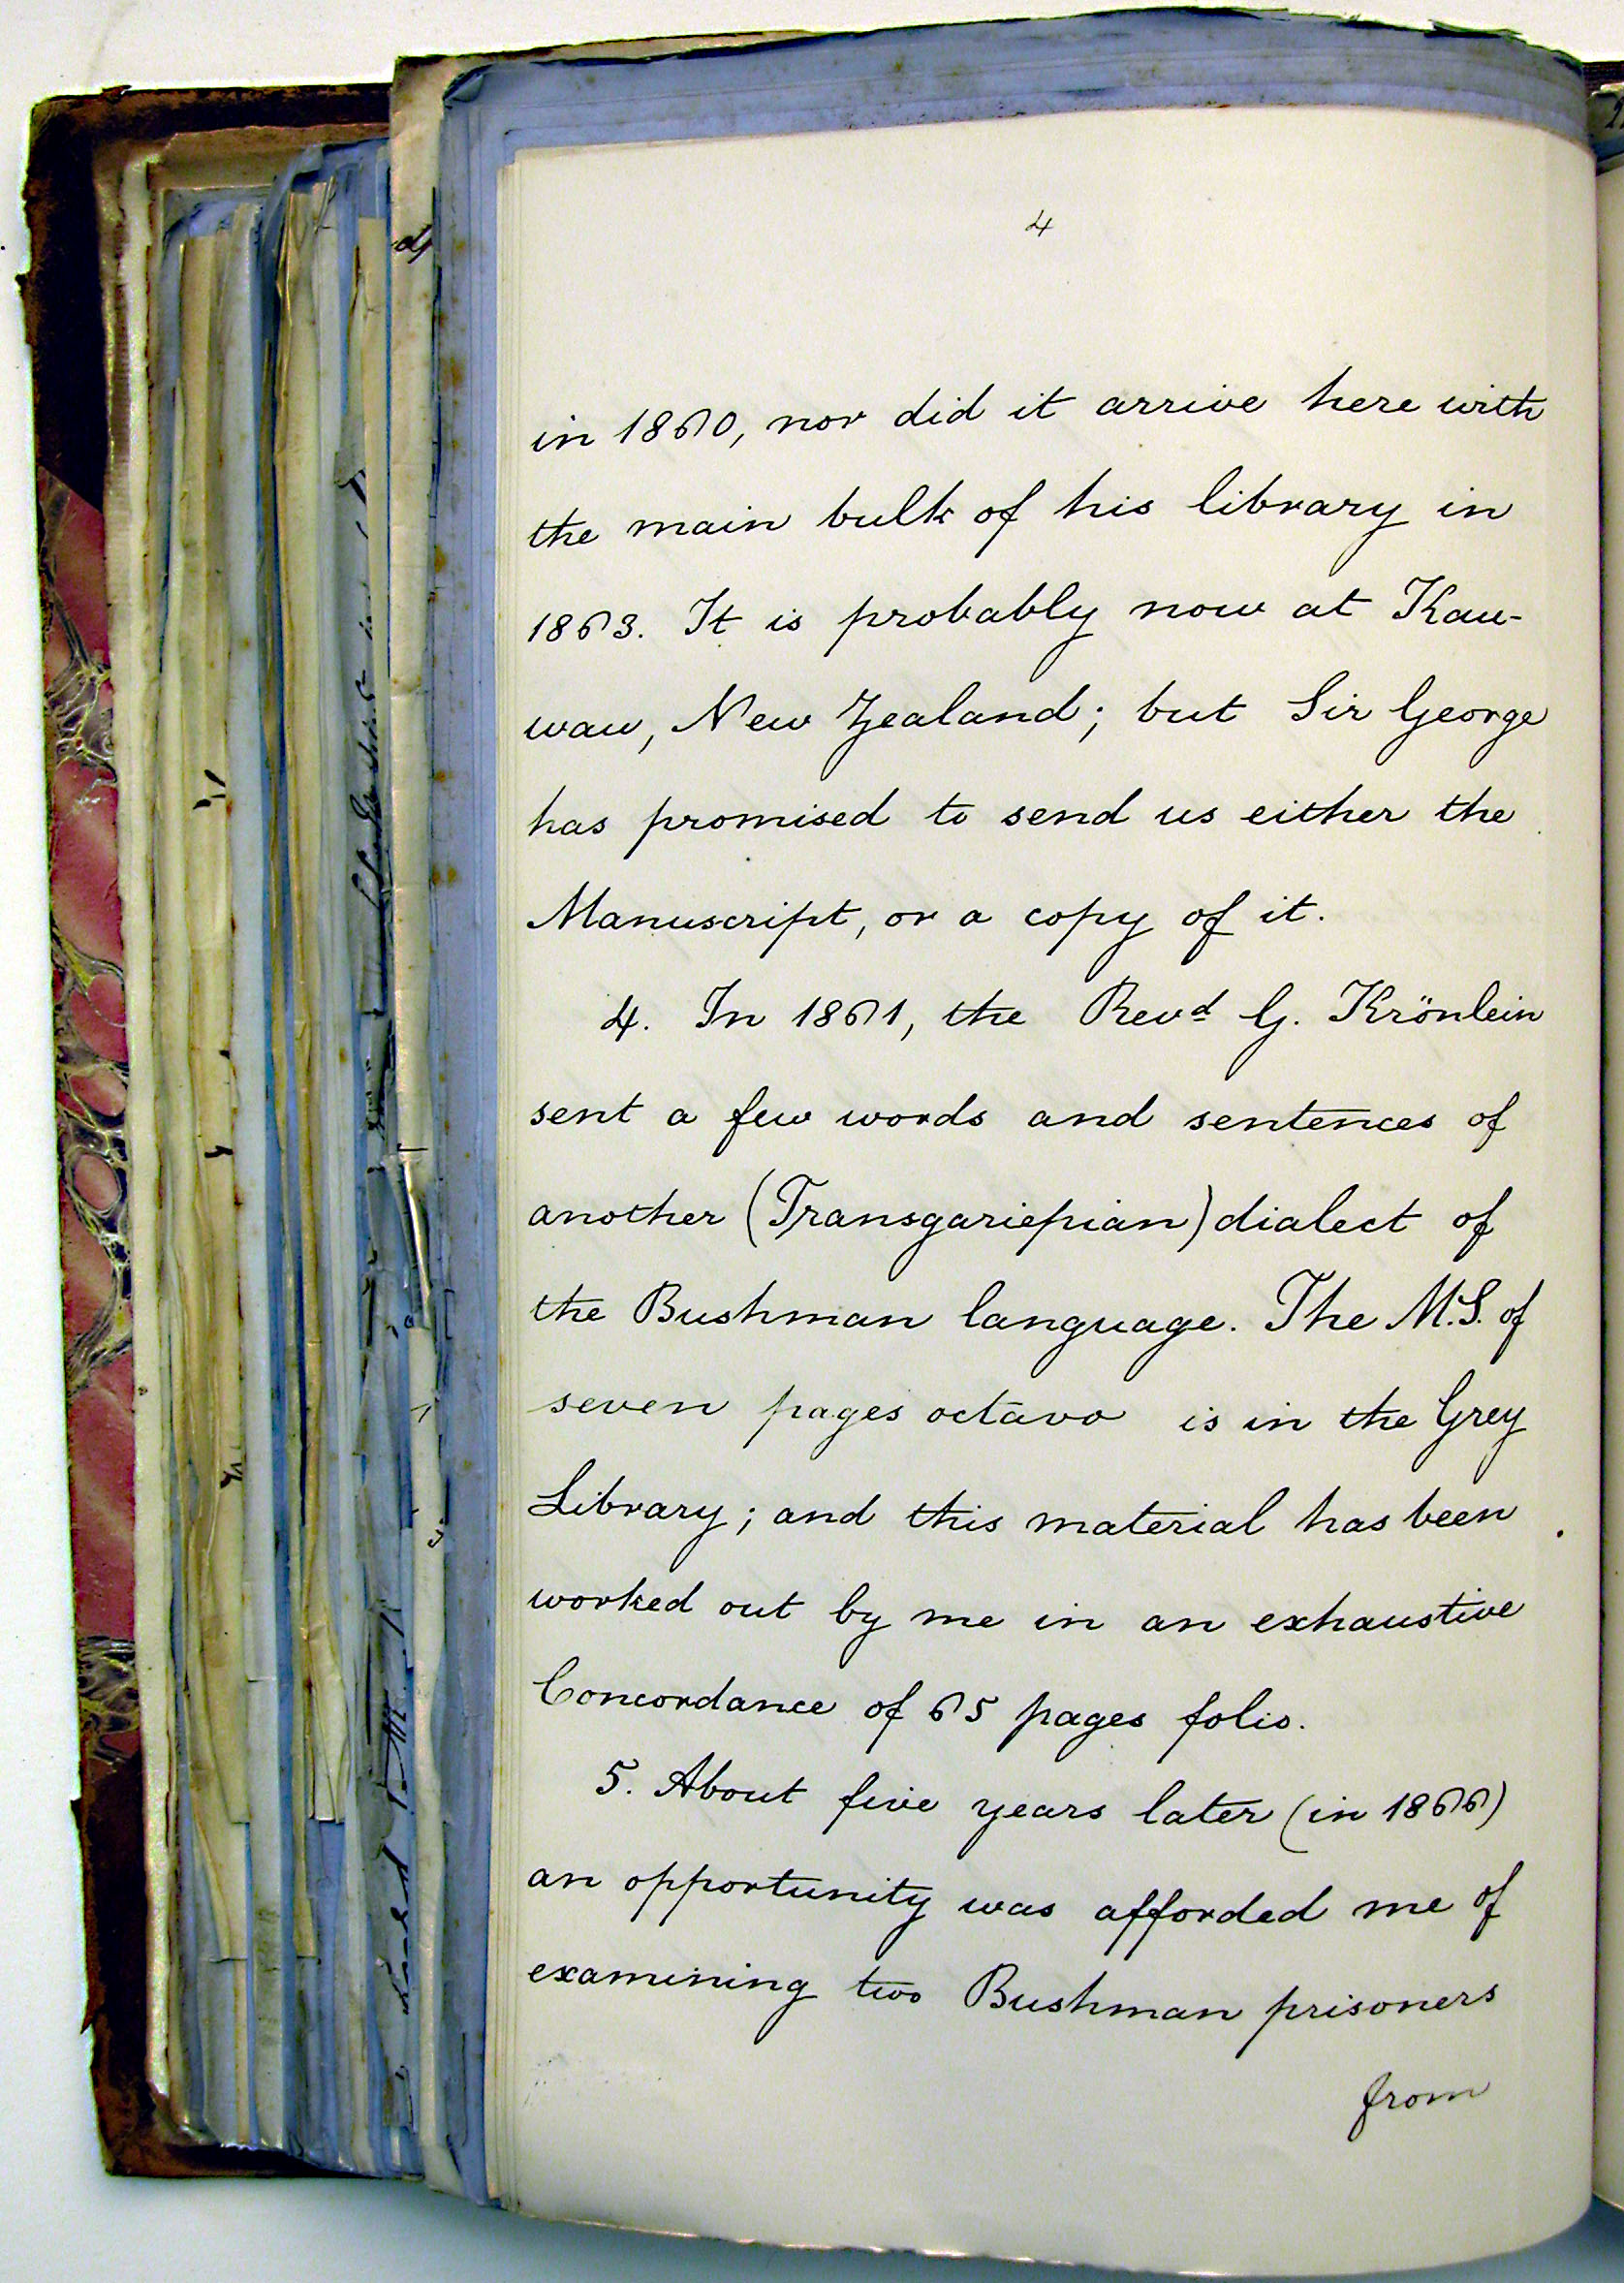 4
in 1860, nor did it arrive here with
the main bulk of his library in
1863. It is probably now at Kau-
wau, New Zealand; but Sir George
has promised to send us either the
Manuscript, or a copy of it.
4. In 1861, the Revd G. Krönlein
sent a few words and sentences of
another (Transgariepian) dialect of
the Bushman language. The M.S. of
seven pages octavo is in the Grey
Library; and this material has been
worked out by me in an exhaustive
Concordance of 65 pages folio.
5. About five years later (in 1866)
an opportunity was afforded me of
examining two Bushman prisoners
from